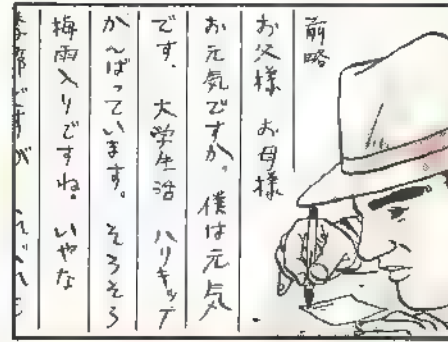 前略
お父様 お母様
お元気ですか。僕は元気
です. 大学生活 ハリキッテ
がんばっています。そろそろ
梅雨入りですね。いやな
季節ですが